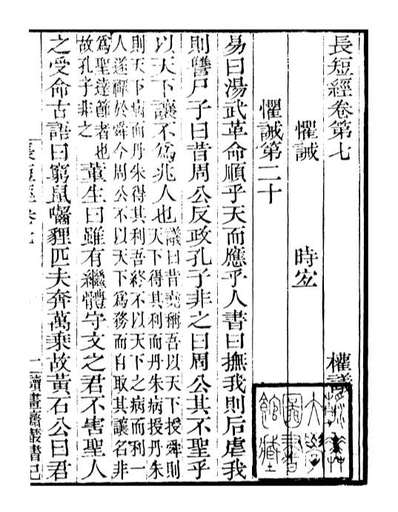 長短經卷第七 權議
懼誡 時宐
懼誡第二十
易曰湯武革命順乎天而應乎人書曰撫我則后虐我
則讐尸子曰昔周公反政孔子非之曰周公其不聖乎
以天下讓不爲兆人也議曰昔堯稱吾以天下授舜則
天下得其利而丹朱病授丹朱
則天下病而丹朱得其利吾終不以天下之病而利一
人遂禪於舜今周公不以天下爲務而自取其讓名非
爲聖達節者也
故孔子非之
董生曰雖有繼體守文之君不害聖人
之受命古語曰窮鼠嚙貍匹夫奔萬乘故黃石公曰君
長短經卷七 一 讀畫齋叢書己
大學
圖書
館藏